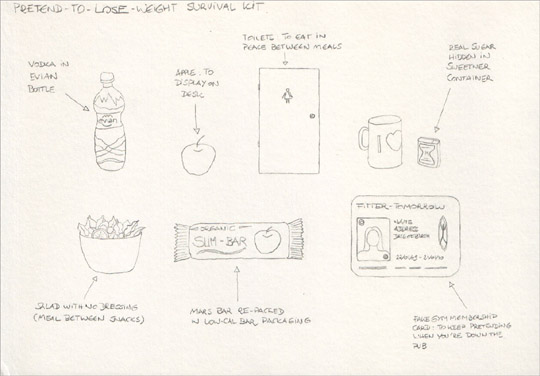 PRETEND-TO-LOSE-WEIGHT SURVIVAL KIT
VODKA IN
EVIAN
BOTTLE
evian
APPLE TO
DISPLAY ON
DESK
TOILETS TO EAT IN
PEACE BETWEEN MEALS
REAL SUGAR
HIDDEN IN
SWEETNER
CONTAINER
I
SALAD WITH NO DRESSING
(MEAL BETWEEN SNACKS)
ORGANIC
SLIM-BAR
MARS BAR RE-PACKED
IN LOW-CAL BAR PACKAGING
FITTER-TOMORROW
NAME
ADDRESS
DATE OF BIRTH
FAKE GYM MEMBERSHIP
CARD: TO KEEP PRETENDING
WHEN YOU'RE DOWN THE
PUB